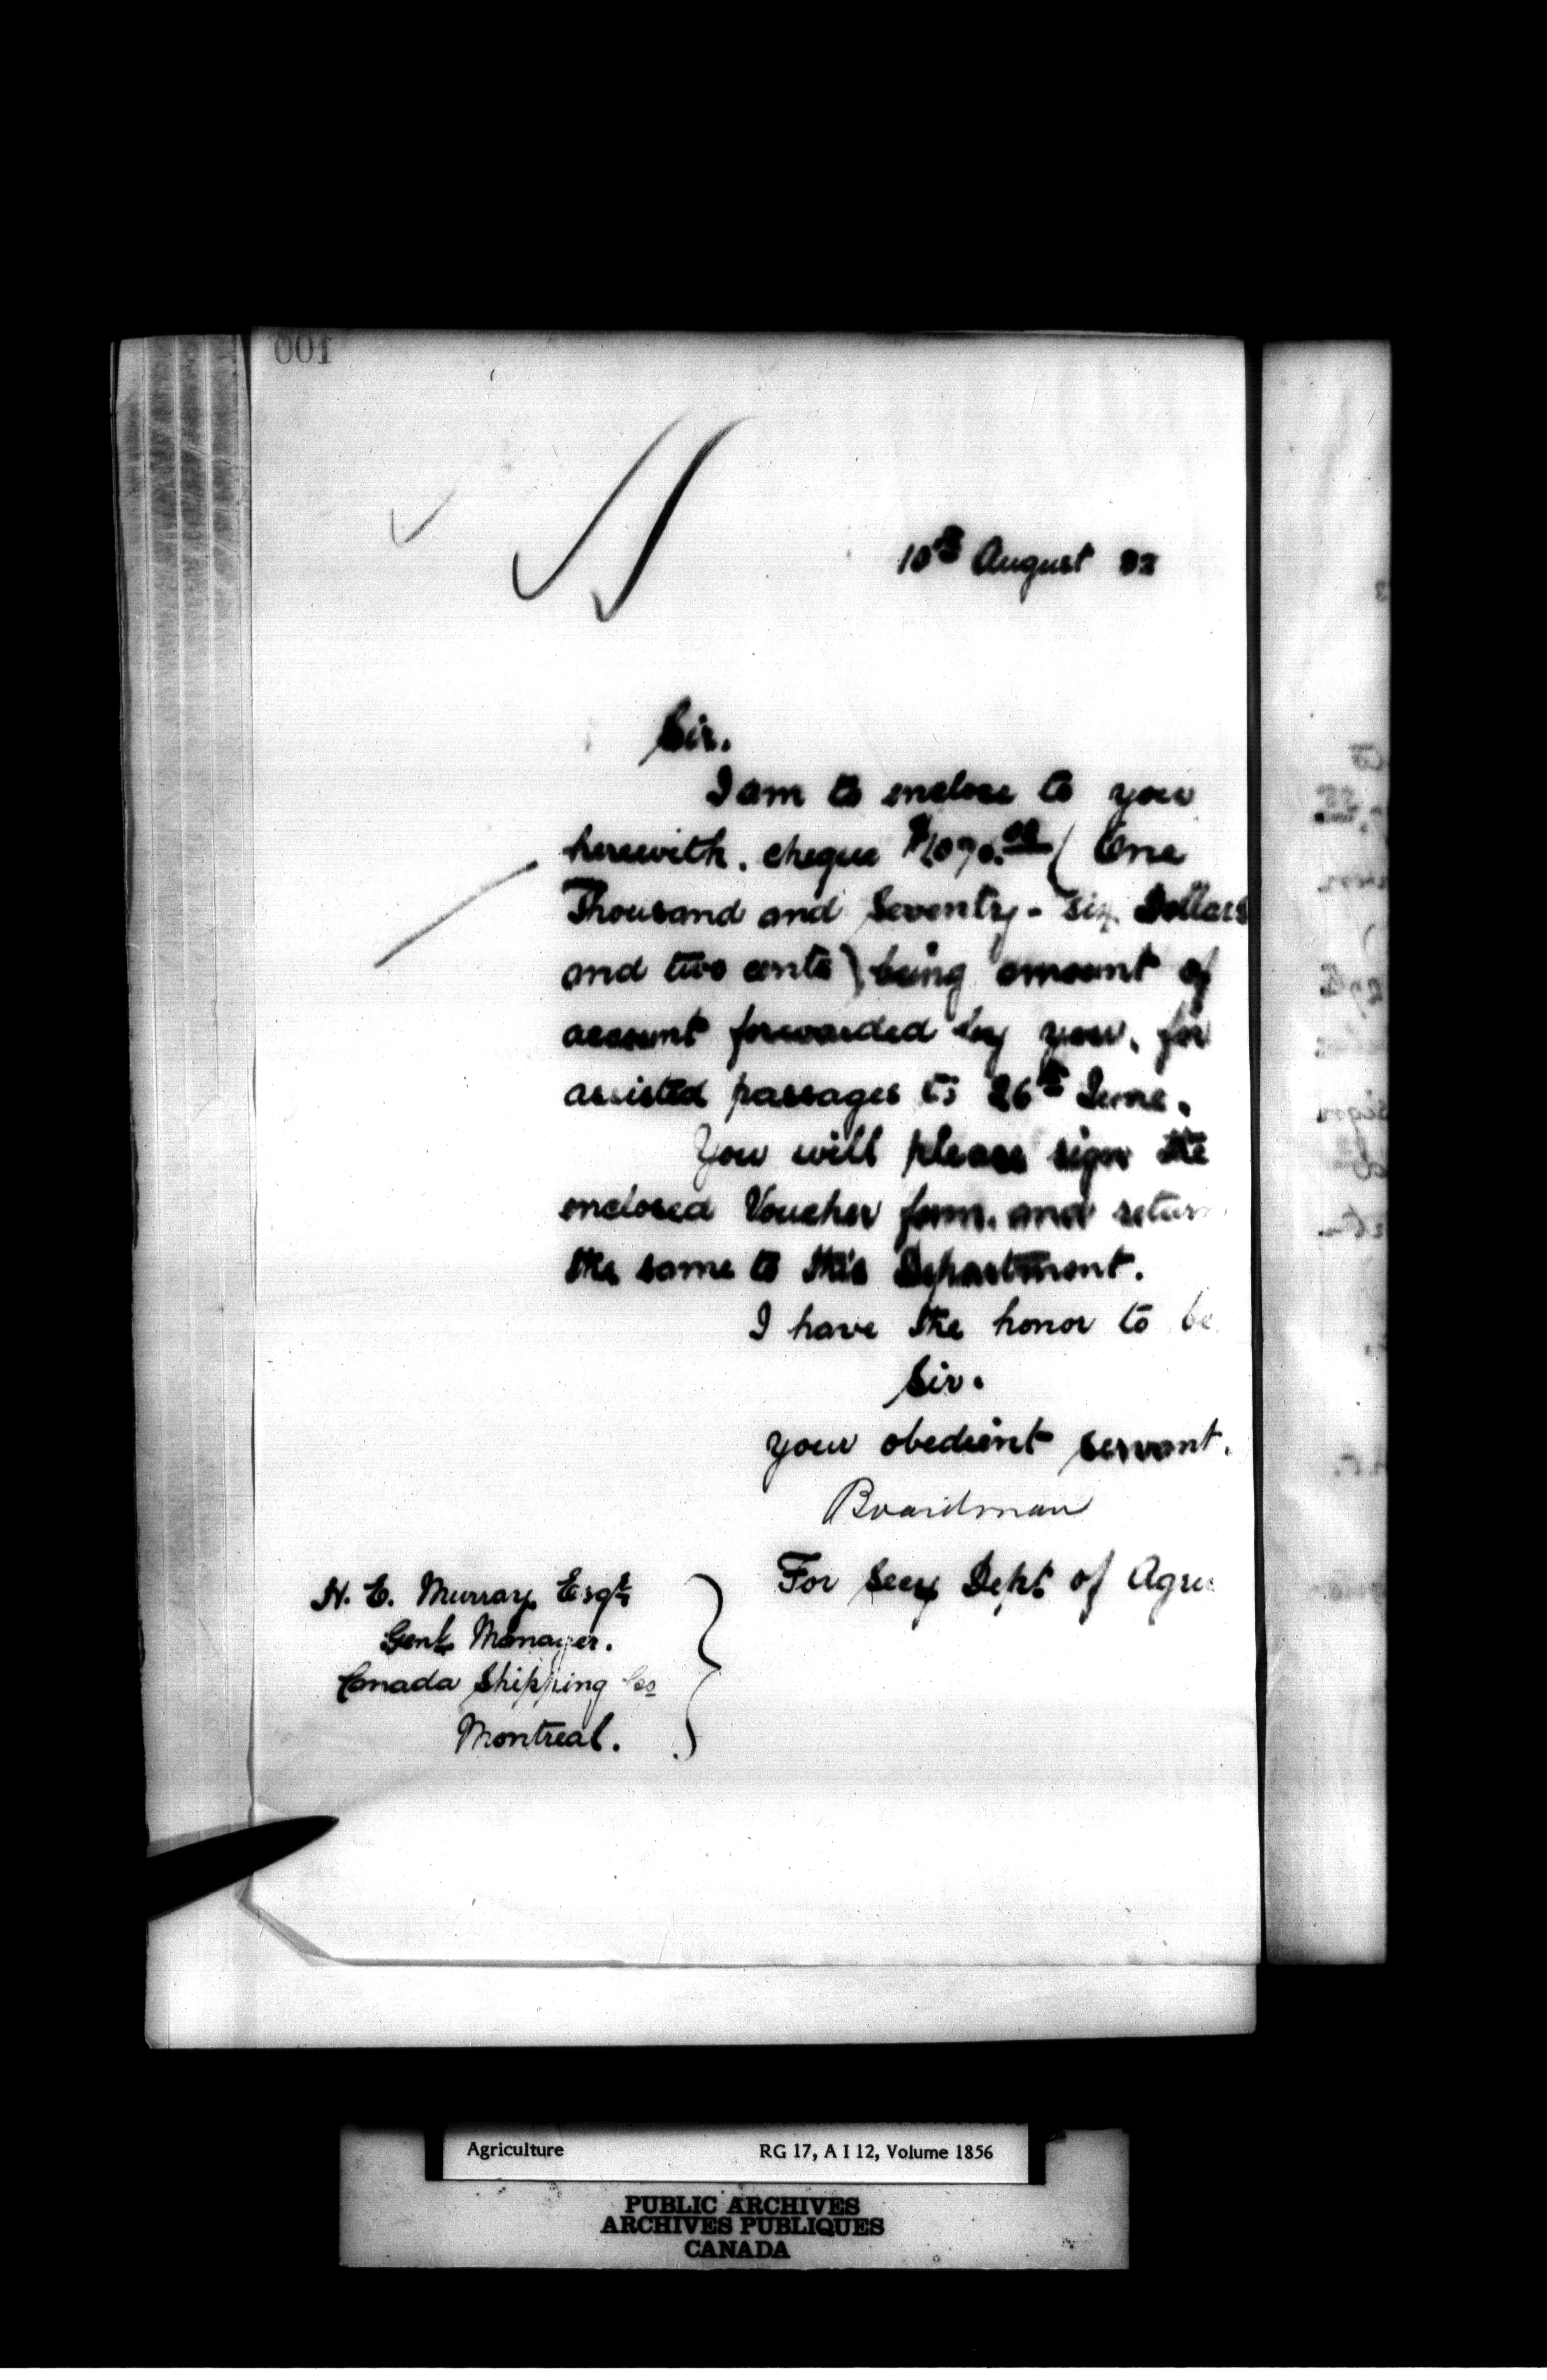 001
10th August 83
Sir.
I am to enclose to you
herewith. cheque $1076.02 ( One
Thousand and Seventy-six Dollars
and two cents) being amount of
account forwarded by you, for
assisted passages to 26th June.
You will please sign the
enclosed Voucher form. and return
the same to this Department.
I have the honor to be
Sir.
your obedient servant.
Boardman
For Secy Dept of Agri
H. E. Murray Esqr
Genl Manager.
Canada Shipping Co
Montreal.
Agriculture RG 17, A I 12, Volume 1856
PUBLIC ARCHIVES
ARCHIVES PUBLIQUES
CANADA